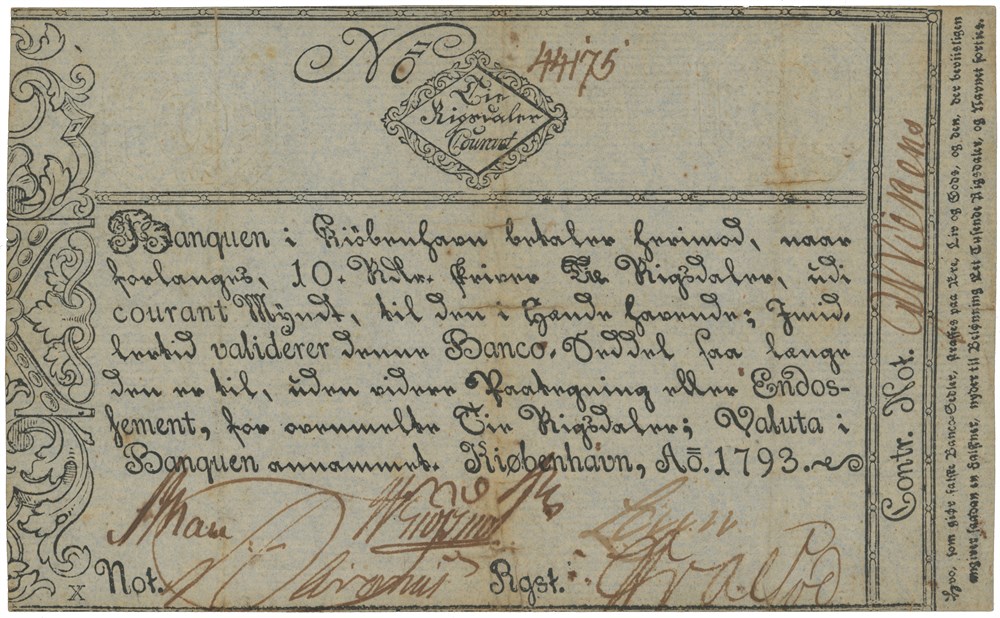 No 44175
Tie
Rigsdaler
Courant
Banquen i Kiöbenhavn betaler herimod, naar
forlanges, 10. Rdlr. skriver Tie Rigsdaler, udi
courant Myndt, til den i Hænde havende; Imid-
lertid validerer denne Banco-Seddel saa længe
den er til, uden videre Paategning eller Endos-
sement, for ovenmelte Tie Rigsdaler; Valuta i
Banquen annammet. Kiøbenhavn, Aō. 1793.
Not.
Rgst.
X
Contr. Not.
Hvo, som giør falske Banco-Sedler, straffes paa Ære, Liv og Gods, og den, der beviisligen
angiver saadan en Falskner, nyder til Belønning Eet Tusende Rigsdaler, og Navnet forties.